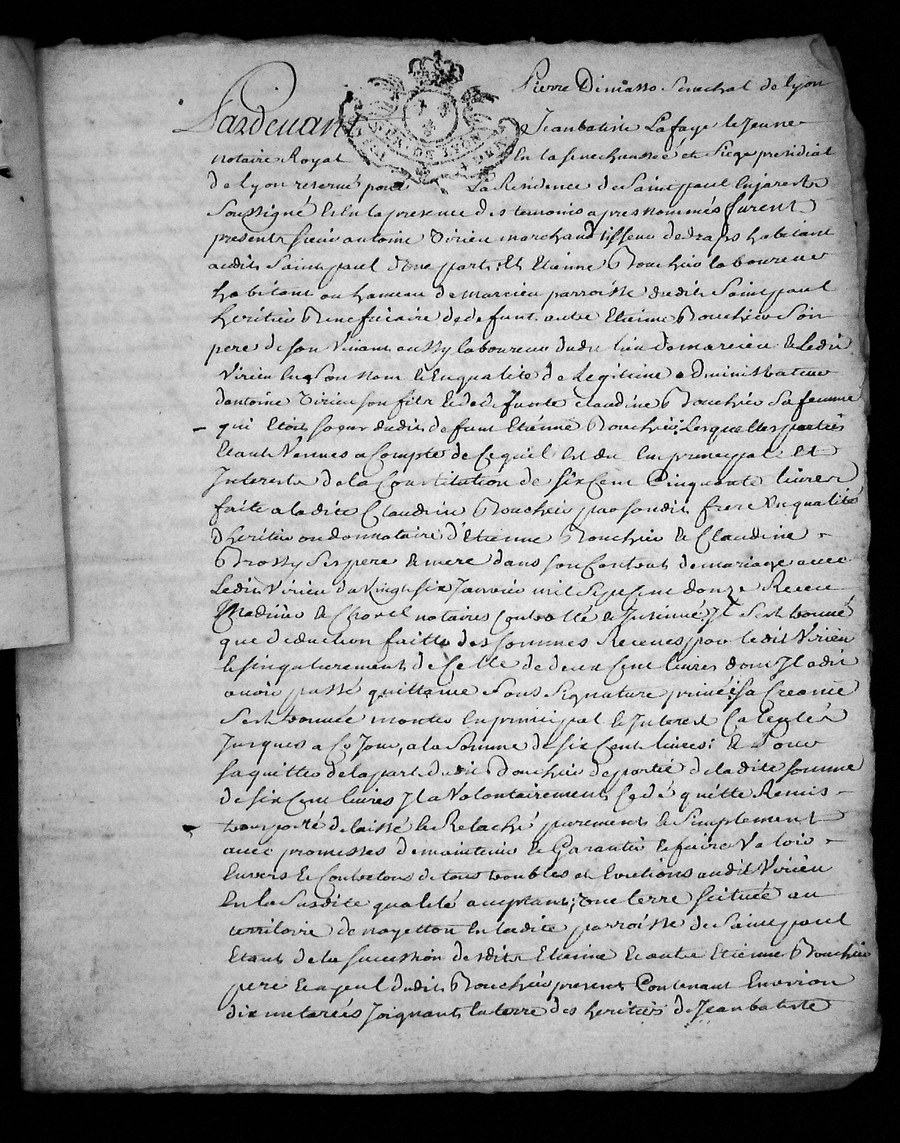 Pierre Dimasso Senechal de lyon
Pardevant Jeanbatiste Lafaye le jeune
notaire Royal En la senechaussée et Siege presidial
de Lyon reservé pour La Residence de Saint paul En jarest
soussigné Et En la presence des temoins apres nommés furent
present sieur antoine Virieu marchand tisseur de draps habitant
audit Saint paul d'une part; Et Etienne Bouchie laboureur
habitant au hameau de marcieu parroisse dudit Saint paul
heritier Beneficiaire de defunt autre Etienne Bouchie Son
pere de son Vivant aussy laboureur dudit lieu de marcieu & Ledit
Virieu En Son nom & En qualité de Legitime administrateur
d'antoine Virieu son fils & de defunte claudine Bouchie Sa femme
qui Etoit soeur dudit defunt Etienne Bouchie; Lesquelles parties
Etant Venues a Compte de Ce quil Est du En principal Et
Interests de la Constitution de six Cent Cinquante livres
faite a ladite Claudine Bouchie par sondit frere En qualité
d'heritier ou donnataire d'Etienne Bouchie & Claudine
Brossy Ses pere & mere dans son Contrat de mariage avec
Ledit Virieu du Vingt six Janvier mil Sept Cent douze Receu
& Chovel notaires Controllé & Insinué; Il S'est trouvé
que deduction faitte des sommes Receues par ledit Virieu
& singulierement de Celle de deux Cent livres dont Il a dit
avoir passé quittance Sous Signature privée; Sa Creance
S'est trouvée monter En principal & Interest Calculés
Jusques a Ce Jour, a la Somme de six Cent livres: & Pour
s'aquitter de la part dudit Bouchie de partie de ladite somme
de six Cent livres Il a Volontairement Cedé quitte Remis
transporté delaissé & Relaché purement & Simplement
avec promesses de maintenir & Garantir & faire Valoir
Envers & Contre tous de tous troubles et Evictions audit Virieu
En la Susdite qualité acceptant; une terre scituée au
territoire de nayetton En ladite parroisse de Saint paul
Etant de la succession desdits Etienne & autre Etienne Bouchie
pere & ayeul dudit Bouchie present Contenant Environ
dix metarées Joignant la terre des heritiers de Jean batiste